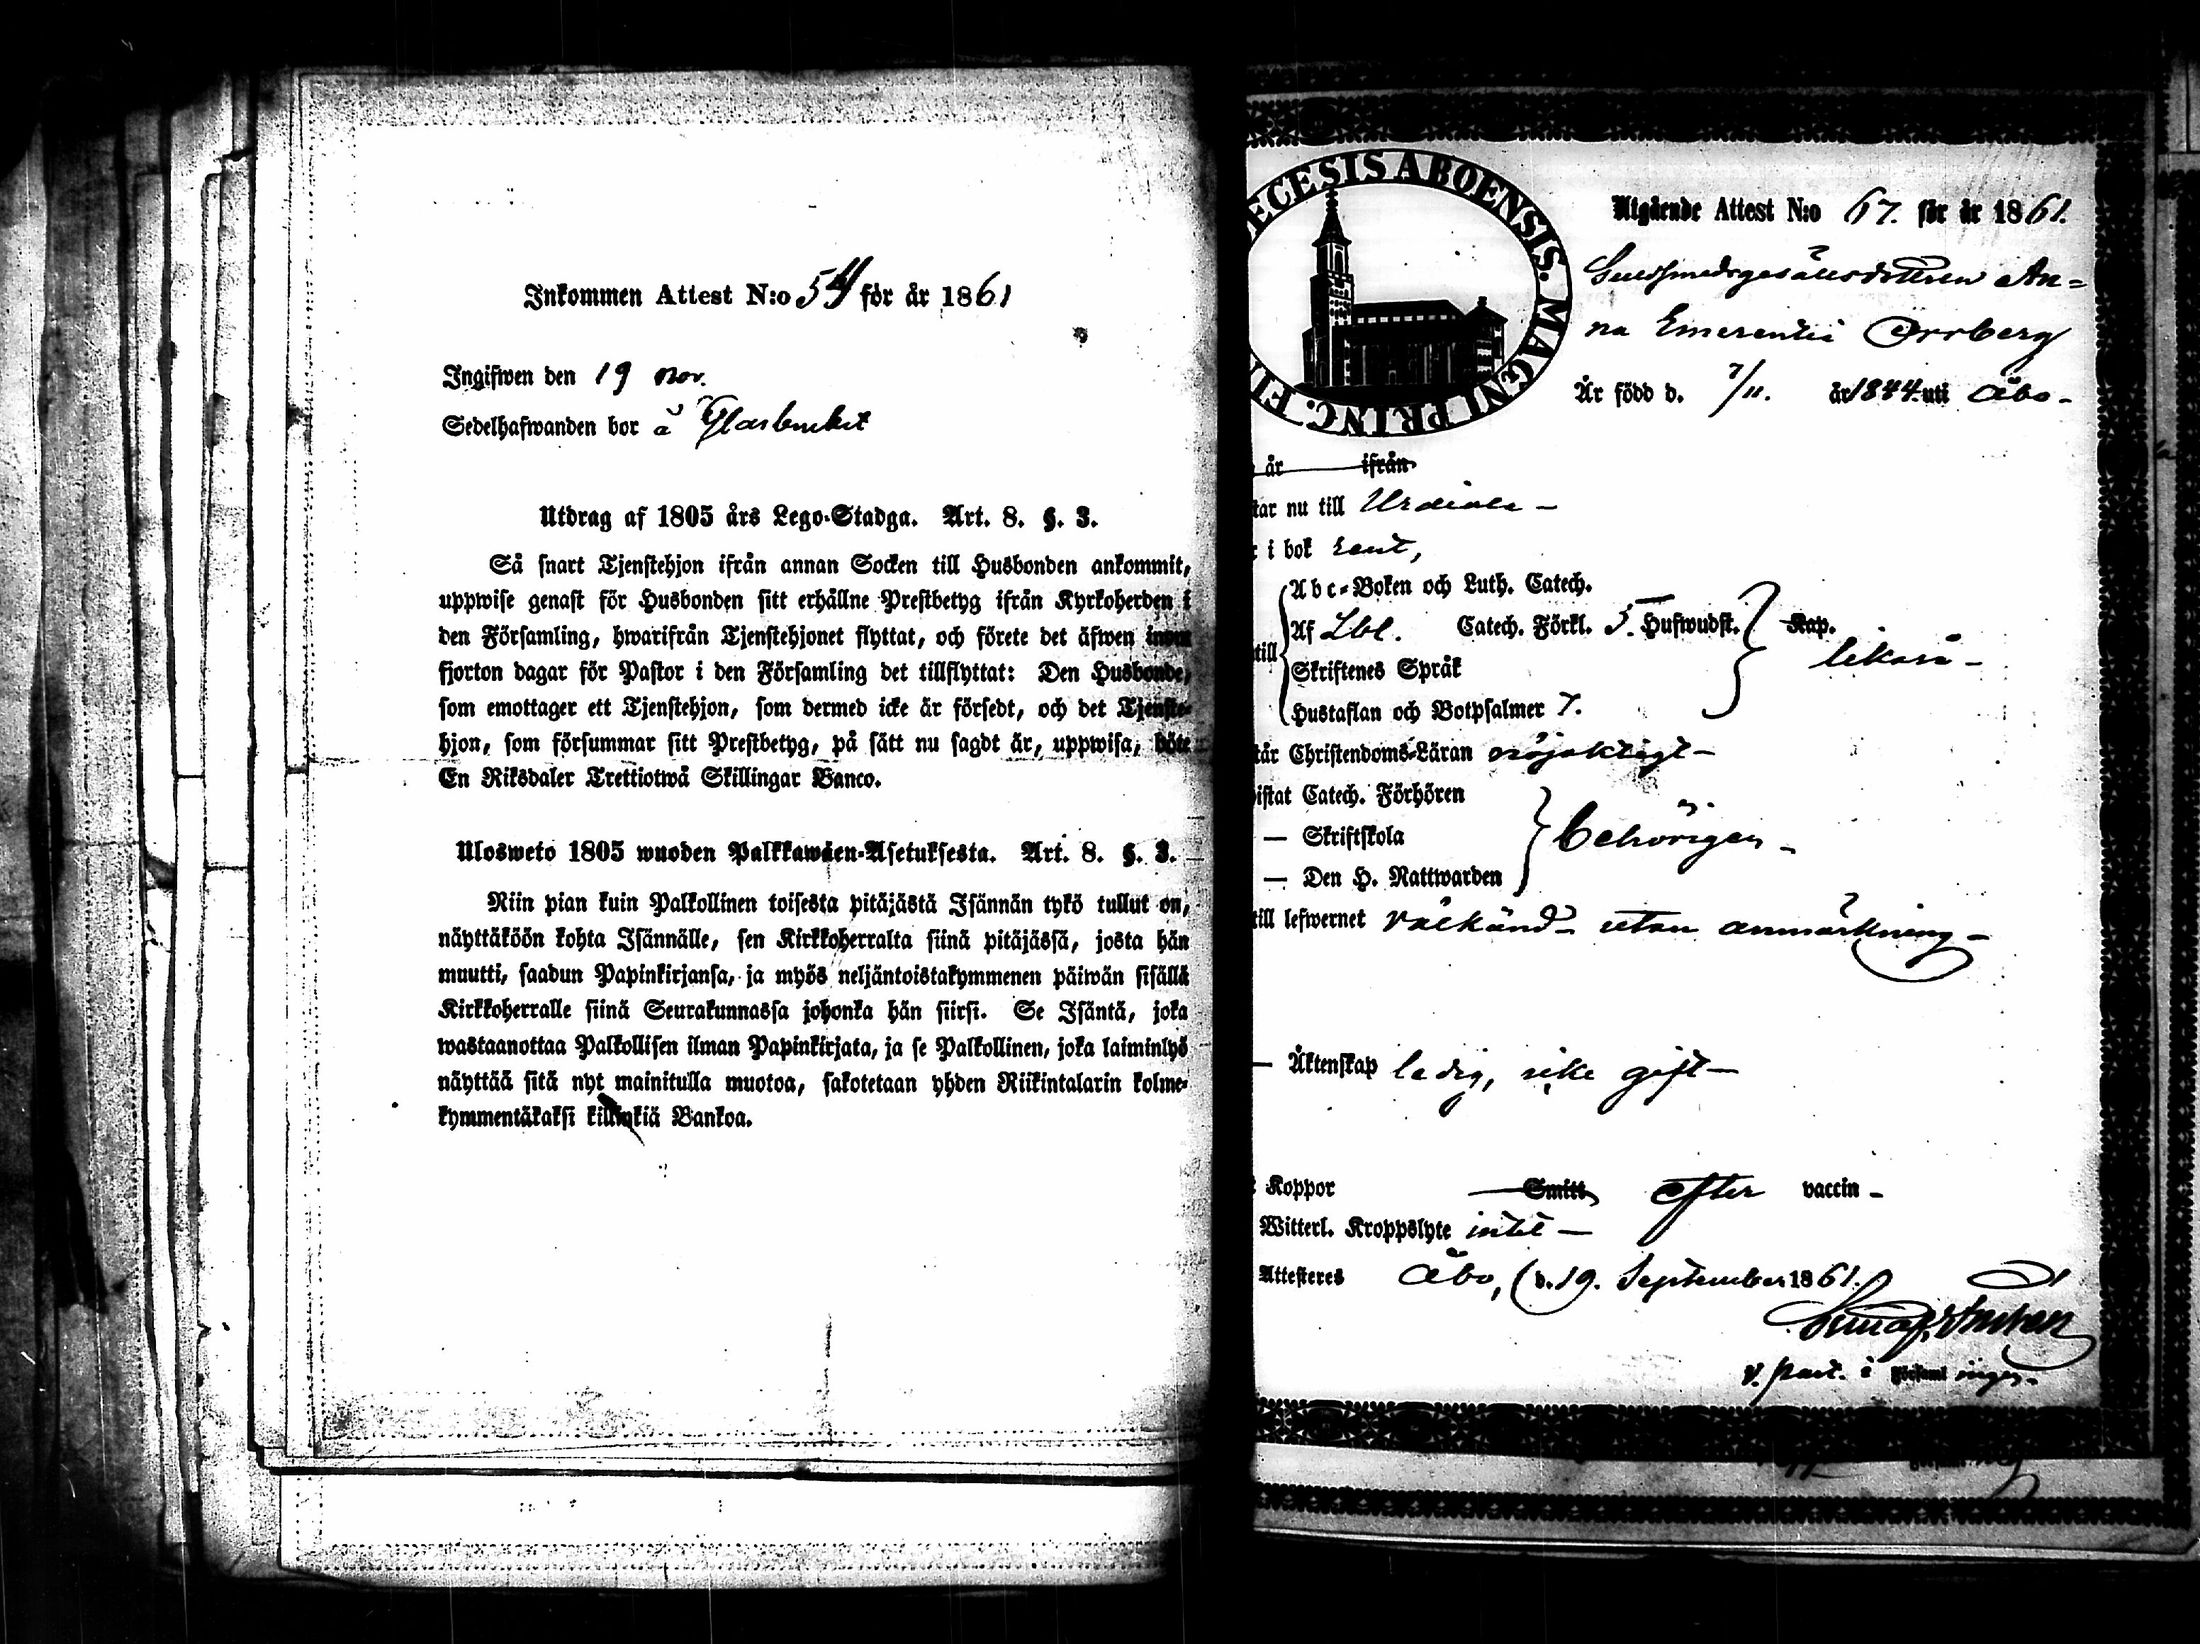 Inkommen Attest N:o 54 för år 1861
Ingifwen den 19 nov.
Sedelhafwanden bor å Glasbruket
Utdrag af 1805 års Lego-Stadga. Art. 8. §. 3.
Så snart Tjenstehjon ifrån annan Socken till Husbonden ankommit,
uppwise genast för Husbonden sitt erhållne Prestbetyg ifrån Kyrkoherden i
den Församling, hwarifrån Tjenstehjonet flyttat, och förete det äfwen inom
fjorton dagar för Pastor i den Församling det tillflyttat: Den Husbonde,
som emottager ett Tjenstehjon, som dermed icke är försedt, och det Tjenste-
hjon, som försummar sitt Prestbetyg, på sätt nu sagdt är, uppwisa, böte
En Riksdaler Trettiotwå Skillingar Banco.
Ulosweto 1805 wuoden Palkkawäen-Asetuksesta. Art. 8. §. 3.
Niin pian kuin Palkollinen toisesta pitäjästä Isännän tykö tullut on,
näyttäköön kohta Isännälle, sen Kirkkoherralta siinä pitäjässä, josta hän
muutti, saadun Papinkirjansa, ja myös neljäntoistakymmenen päiwän sisällä
Kirkkoherralle siinä Seurakunnassa johonka hän siirsi. Se Isäntä, joka
wastaanottaa Palkollisen ilman Papinkirjata, ja se Palkollinen, joka laiminlyö
näyttää sitä nyt mainitulla muotoa, sakotetaan yhden Riikintalarin kolme-
kymmentäkaksi killinkiä Bankoa.
ECESIS ABOENSIS. MAGNI PRINC. FIN
Utgående Attest N:o 67. för år 1861.
Guldsmedsgesällsdottren An-
na Emerentia Orrberg
Är född d. 7/11. år 1844. uti Åbo -
år ifrån
tar nu till Urdiala -
i bok rent,
Abc-Boken och Luth. Catech.
Af Lbl. Catech. Förkl. 5. Hufwudst. Kap.
till Skriftenes Språk likaså -
Hustaflan och Botpsalmer 7.
tår Christendoms-Läran nöjaktigt -
istat Catech. Förhören
— Skriftskola behörigen -
— Den H. Nattwarden
till lefwernet välkänd - utan anmärkning -
— Äktenskap ledig, icke gift -
Koppor Smitt efter vaccin -
Witterl. Kroppslyte intet -
Attesteres Åbo, d. 19. September 1861.
v. past. i Församlingen.